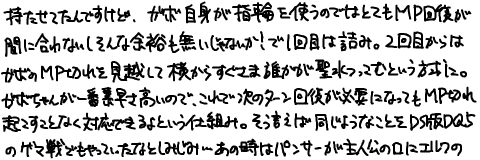 持たせてたんですけど、ガボ自身が指輪を使うのではとてもMP回復が
間に合わないしそんな余裕も無いじゃないか!で1回目は詰み。2回目からは
ガボのMP切れを見越して横からすぐさま誰かが聖水つっこむという方針に。
ガボちゃんが一番素早さ高いので、これで次のターン回復が必要になってもMP切れ
起こすことなく対応できるよという仕組み。そう言えば同じようなことをDS版DQ5
のゲマ戦でもやっていたなとしみじみ…あの時はパンサーが主人公の口にエルフの